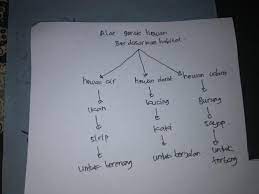 Alat gerak hewan
Berdasarkan habitat
hewan air hewan darat hewan udara
ikan kucing Burung
sirip kaki sayap
untuk berenang untuk berjalan untuk terbang